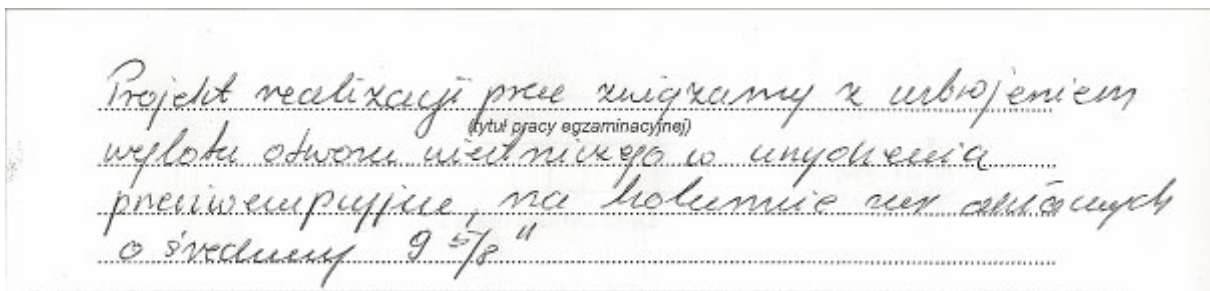 Projekt realizacji prac związany z uzbrojeniem
(tytuł pracy egzaminacyjnej)
wylotu otworu wiertniczego w urządzenia
przeciwerupcyjne, na kolumnie rur okładzinowych
o średnicy 9 5/8"